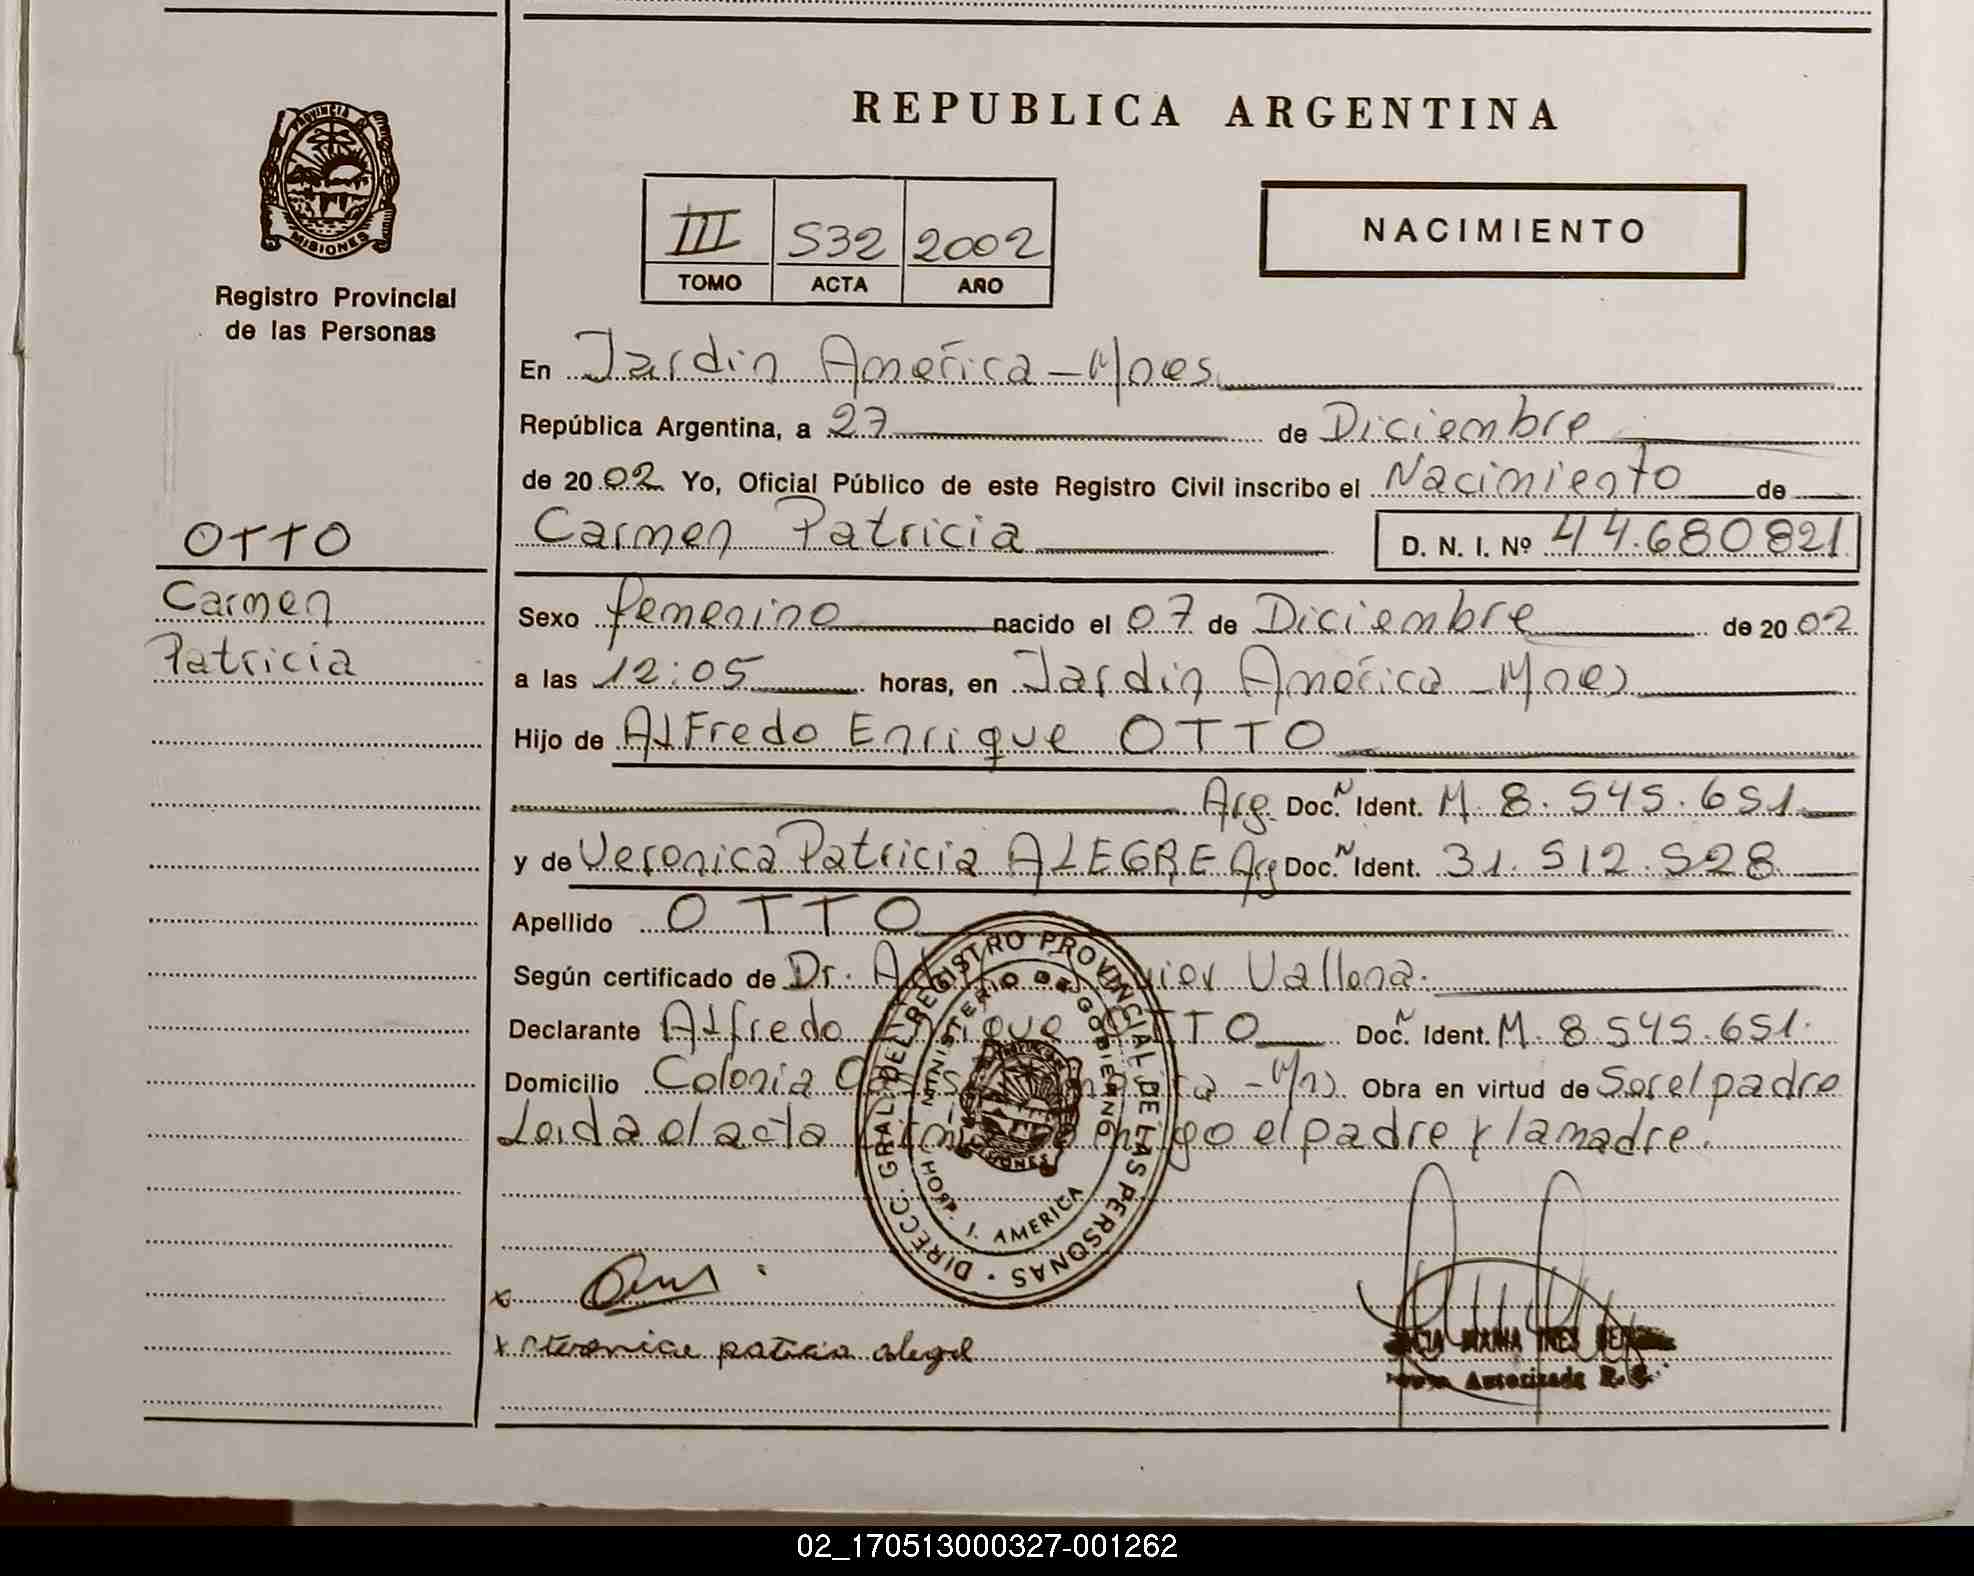 REPUBLICA ARGENTINA
PROVINCIA DE
MISIONES
Registro Provincial
de las Personas
III 532 2002
TOMO ACTA AÑO
NACIMIENTO
En Jardin América - Mnes
República Argentina, a 27 de Diciembre
de 2002 Yo, Oficial Público de este Registro Civil inscribo el Nacimiento de
Carmen Patricia D. N. I. Nº 44.680821
OTTO
Carmen
Patricia
Sexo femenino nacido el 07 de Diciembre de 2002
a las 12:05 horas, en Jardin América - Mnes
Hijo de Alfredo Enrique OTTO
Arg. Doc. N Ident. M. 8.545.651
y de Veronica Patricia ALEGRE Arg Doc. N Ident. 31.512.528
Apellido OTTO
Según certificado de Dr. Vallona.
Declarante Alfredo Enrique OTTO Doc. N Ident. M. 8.545.651.
Domicilio Colonia - Mns Obra en virtud de Ser el padre
Leida el acta el padre y la madre.
DIRECC. GRAL. DEL REGISTRO PROVINCIAL DE LAS PERSONAS
MINISTERIO DE GOBIERNO
HOSP. J. AMERICA
MISIONES
x
x veronica patricia alegre
MARIA INES
Autorizada R.
02_170513000327-001262